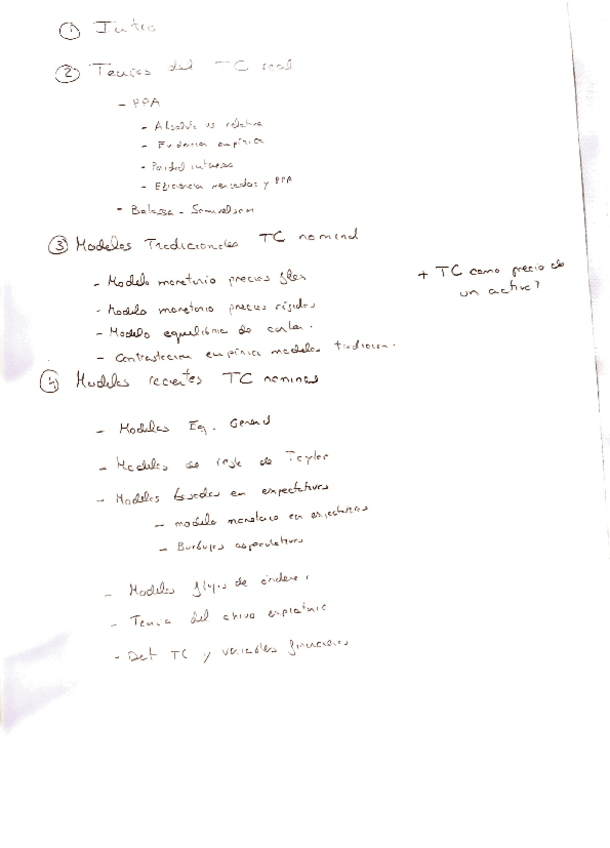 ① Intro
② Teorías del TC real
- PPA
- Absoluta vs relativa
- Evidencia empírica
- Paridad intereses
- Eficiencia mercados y PPA
- Balassa - Samuelson
③ Modelos Tradicionales TC nominal
- Modelo monetario precios flex
+ TC como precio de
un activo?
- Modelo monetario precios rígidos
- Modelo equilibrio de cartera.
- Contrastación empírica modelos tradicion.
④ Modelos recientes TC nominal
- Modelos Eq. General
- Modelos de regla de Taylor
- Modelos basados en expectativas
- modelo monetario en expectativas
- Burbujas especulativas
- Modelos flujos de órdenes
- Teoría del chivo expiatorio
- Det TC y variables financieras